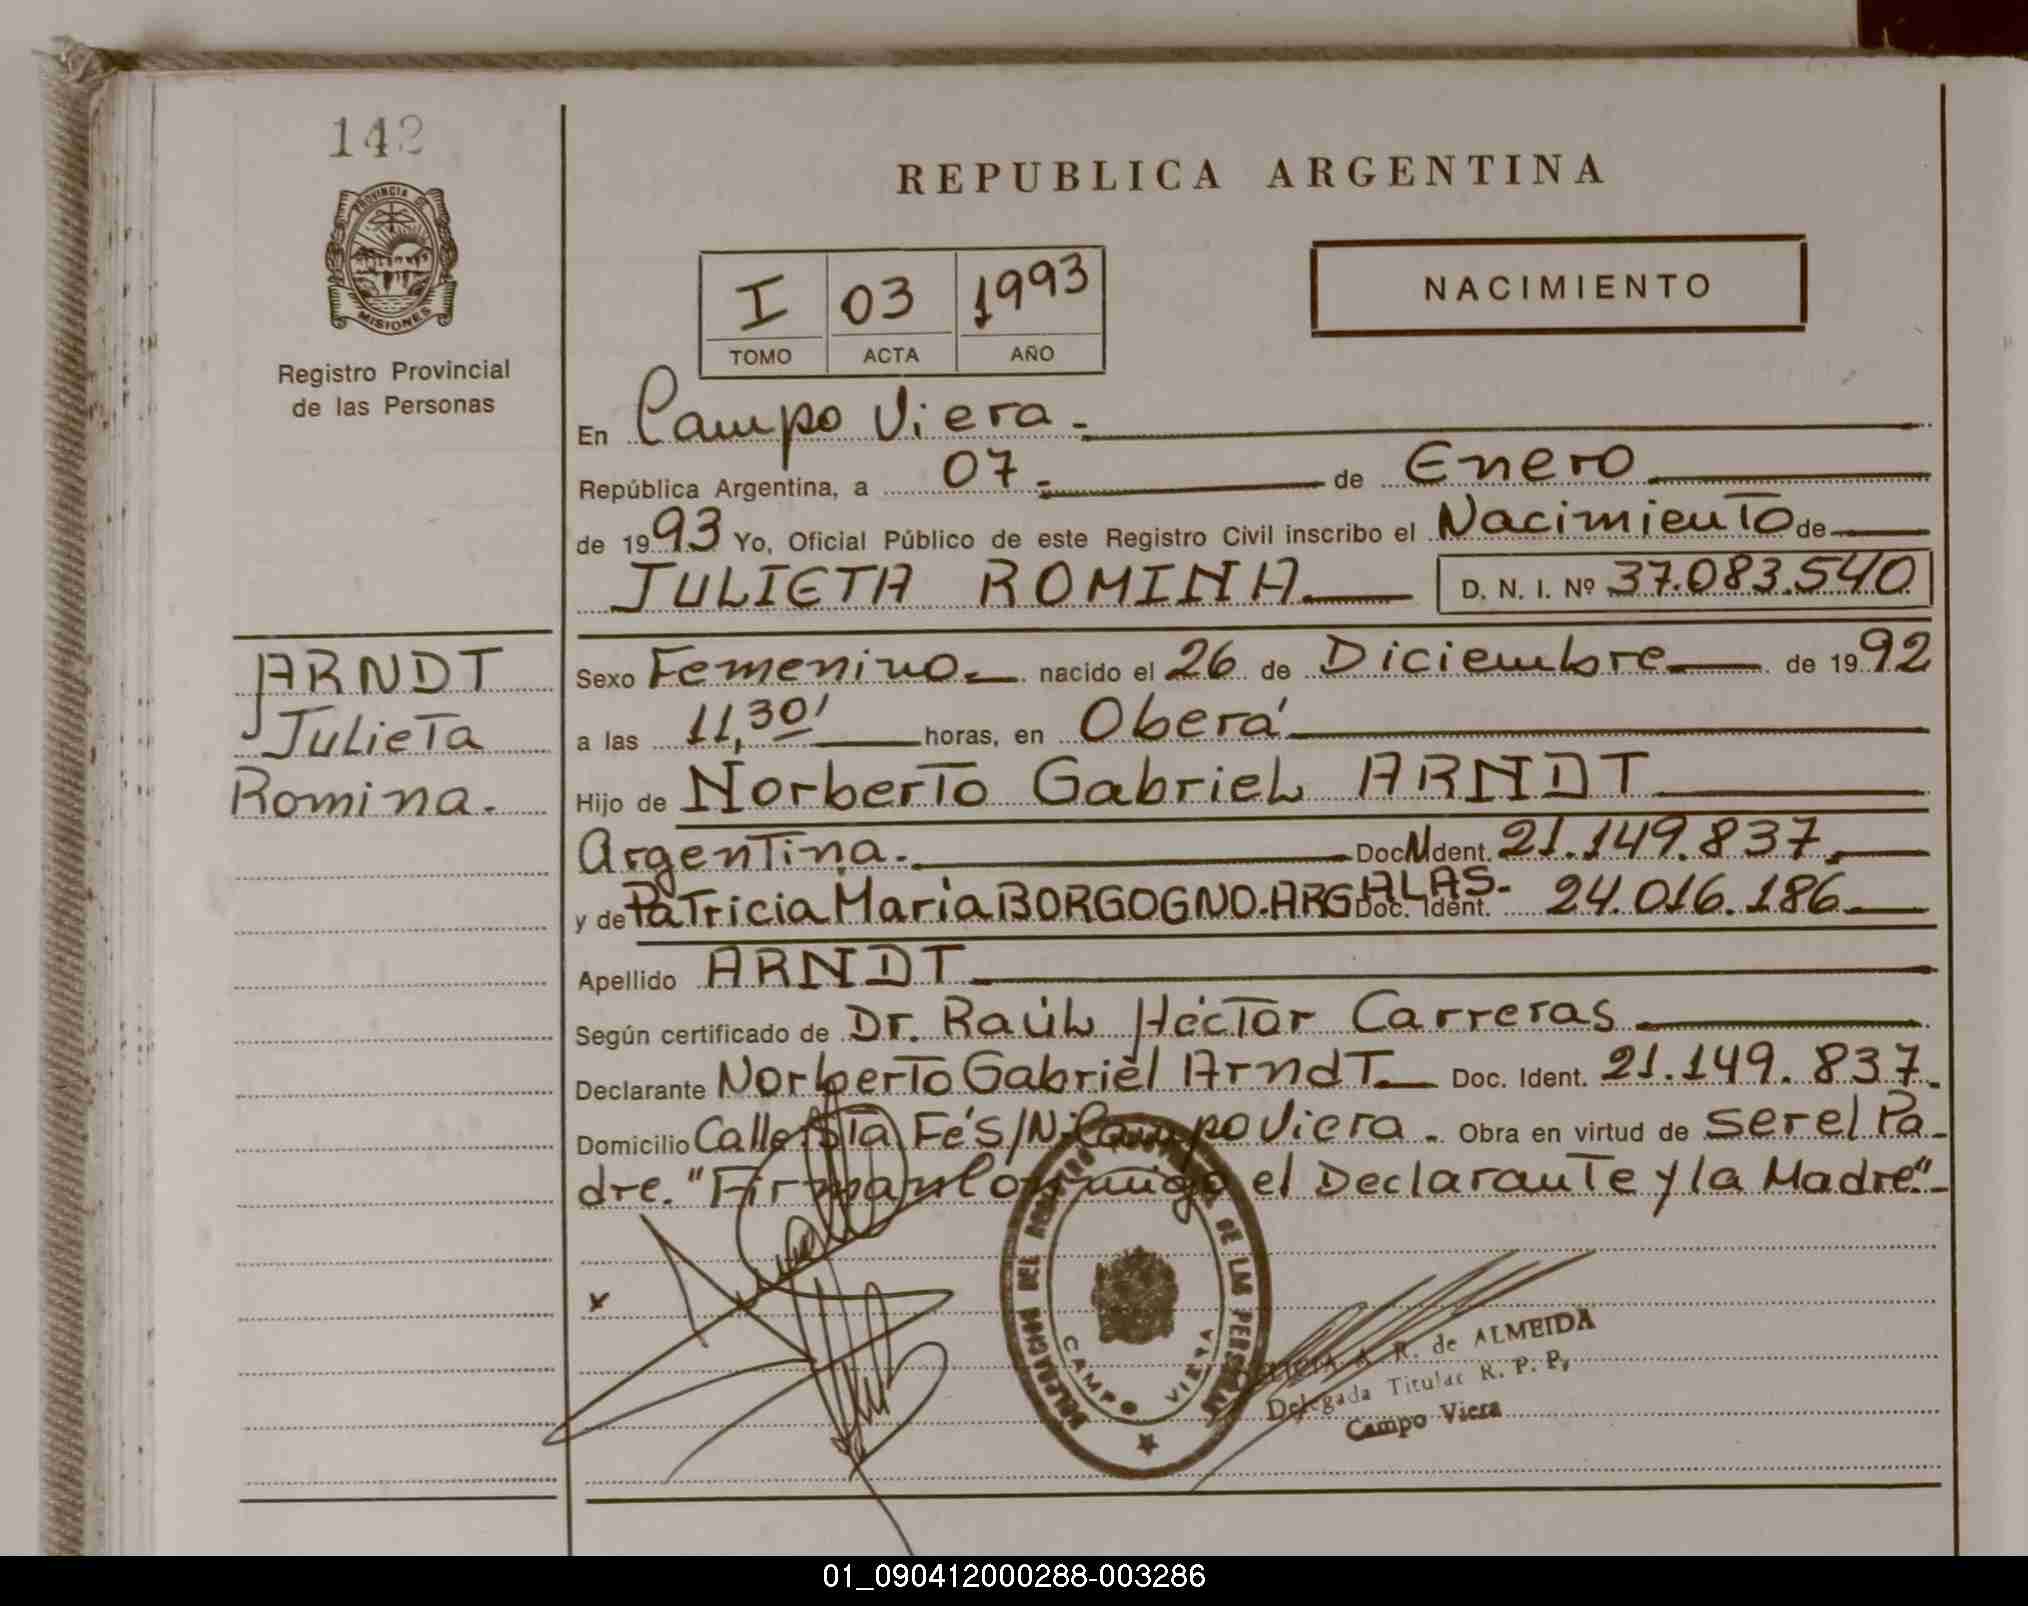 142
PROVINCIA DE
MISIONES
Registro Provincial
de las Personas
REPUBLICA ARGENTINA
NACIMIENTO
I 03 1993
TOMO ACTA AÑO
En Campo Viera.-
República Argentina, a 07.- de Enero
de 1993 Yo, Oficial Público de este Registro Civil inscribo el Nacimiento de
JULIETA ROMINA D. N. I. Nº 37.083.540
ARNDT
Julieta
Romina.
Sexo Femenino.- nacido el 26 de Diciembre de 1992
a las 11,30' horas, en Oberá
Hijo de Norberto Gabriel ARNDT
Argentina.- Doc. Ident. 21.149.837.-
y de Patricia María BORGOGNO.ARG Doc. Ident. 24.016.186.-
Apellido ARNDT
Según certificado de Dr. Raúl Héctor Carreras
Declarante Norberto Gabriel Arndt.- Doc. Ident. 21.149.837.-
Domicilio Calle Sta Fé S/N. Campo Viera.- Obra en virtud de ser el Pa-
dre. "Firman Conmigo el Declarante y la Madre".-
x
DE LAS PERSONAS
CAMPO VIERA
A. R. de ALMEIDA
Delegada Titular R. P. P.
Campo Viera
01_090412000288-003286